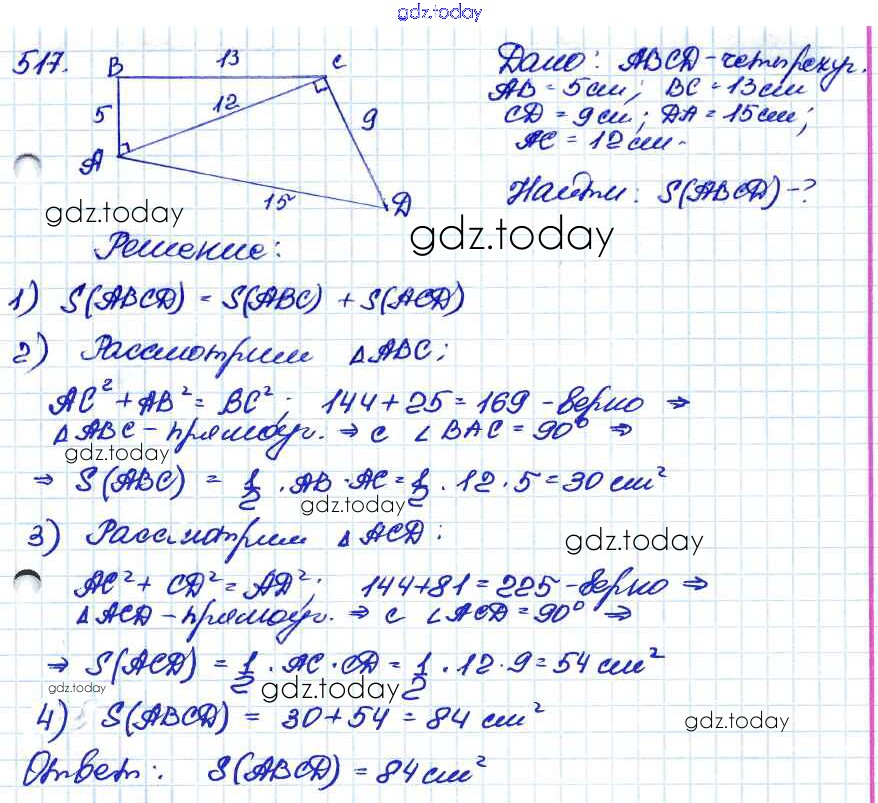 gdz.today
517.
B 13 C
5 12 9
A
15 D
Дано: ABCD-четырехуг.
AB = 5см; BC = 13см
CD = 9см; DA = 15см;
AC = 12см.
Найти: S(ABCD)-?
gdz.today
gdz.today
Решение:
1) S(ABCD) = S(ABC) + S(ACD)
2) Рассмотрим △ABC;
AC² + AB² = BC²; 144+25=169 -верно ⇒
△ABC-прямоуг. ⇒ с ∠BAC = 90° ⇒
gdz.today
⇒ S(ABC) = 1/2 · AB · AC = 1/2 · 12 · 5 = 30 см²
gdz.today
3) Рассмотрим △ACD:
gdz.today
AC² + CD² = AD²; 144+81=225 -верно ⇒
△ACD-прямоуг. ⇒ с ∠ACD = 90° ⇒
⇒ S(ACD) = 1/2 · AC · CD = 1/2 · 12 · 9 = 54 см²
gdz.today
gdz.today
4) S(ABCD) = 30+54 = 84 см²
gdz.today
Ответ: S(ABCD) = 84 см²